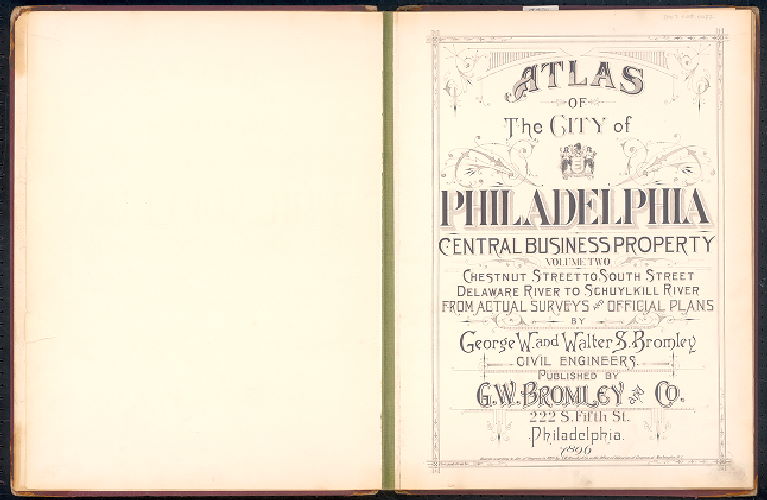 ATLAS
OF
The CITY of
PHILADELPHIA
CENTRAL BUSINESS PROPERTY
VOLUME TWO
CHESTNUT STREET TO SOUTH STREET
DELAWARE RIVER TO SCHUYLKILL RIVER
FROM ACTUAL SURVEYS AND OFFICIAL PLANS
BY
George W. and Walter S. Bromley
CIVIL ENGINEERS.
PUBLISHED BY
G.W. BROMLEY AND CO.
222 S. Fifth St.
Philadelphia.
1896